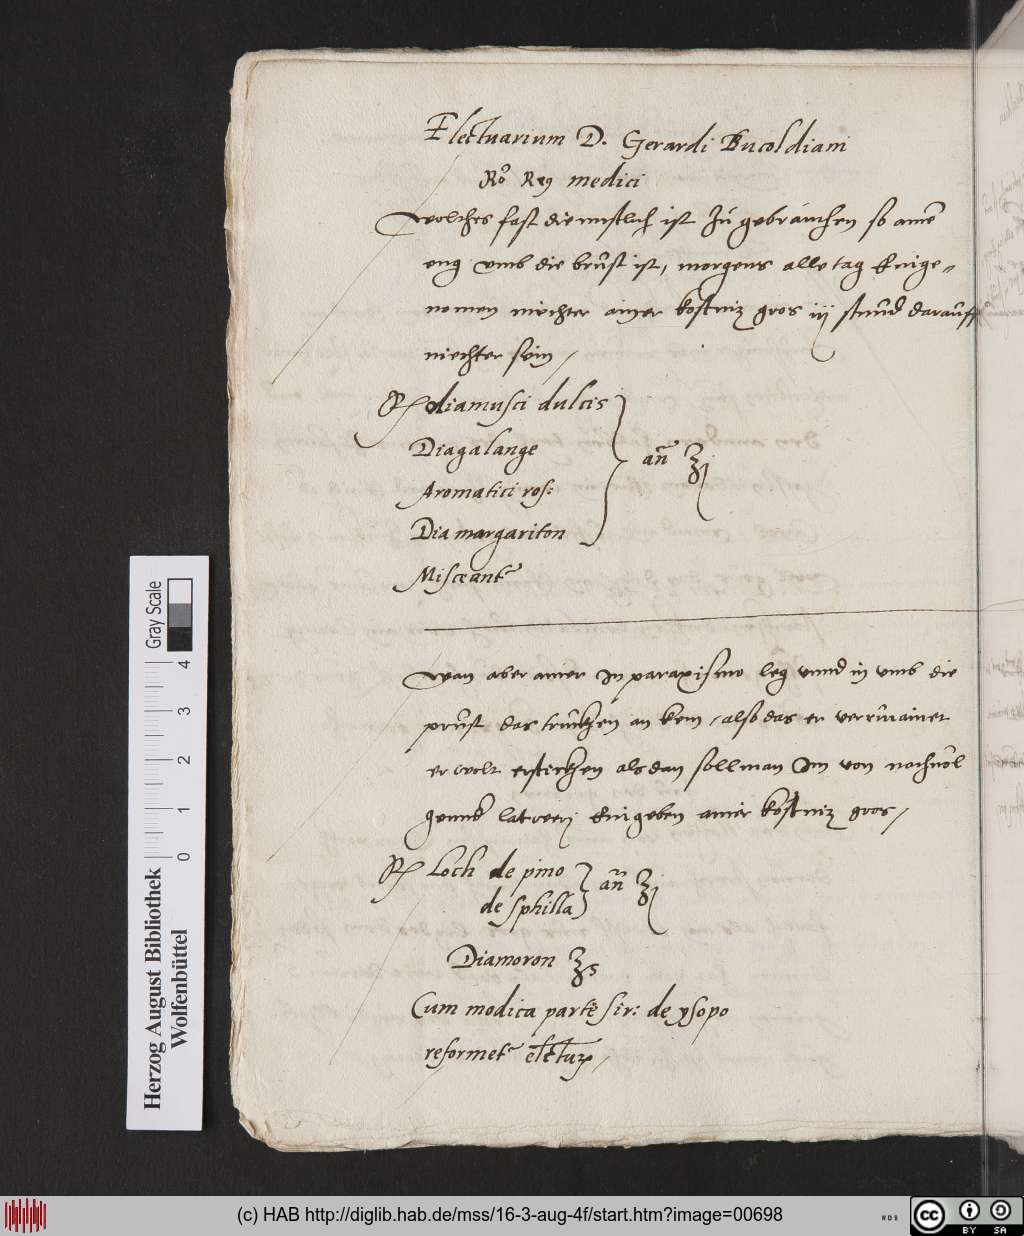 Electuarium D. Gerardi Bucoldiani
Ro Reg medici
welches fast dienustlich ist zu gebrauchen so aine
eng umb die brust ist, morgens alle tag Einge-
nomen niechter ainer kostniz gros iij stund darauff
niechter sein /
℞ diamusci dulcis
Diagalange
Aromatici ros:
Diamargariton
an̄ ʒj
Misceant
Wan aber ainer In paraxismo leg unnd in umb die
prust das trückhen an kem, also das er vermainet
er wolt ersticken als dan soll man Im von nachvol
gennd latweri Eingeben ainer kostniz gros /
℞ Loch de pino
de sphilla
an̄ ʒj
Diamoron ʒs
Cum modica parte sir: de ysopo
reformet electuar /
Gray Scale
0 1 2 3 4
Herzog August Bibliothek
Wolfenbüttel
(c) HAB http://diglib.hab.de/mss/16-3-aug-4f/start.htm?image=00698
WDB
cc BY SA